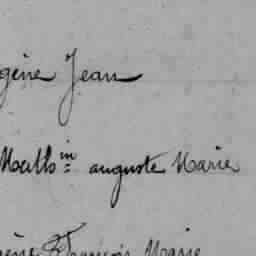 gène Jean
Math^in auguste Marie
gène François Marie